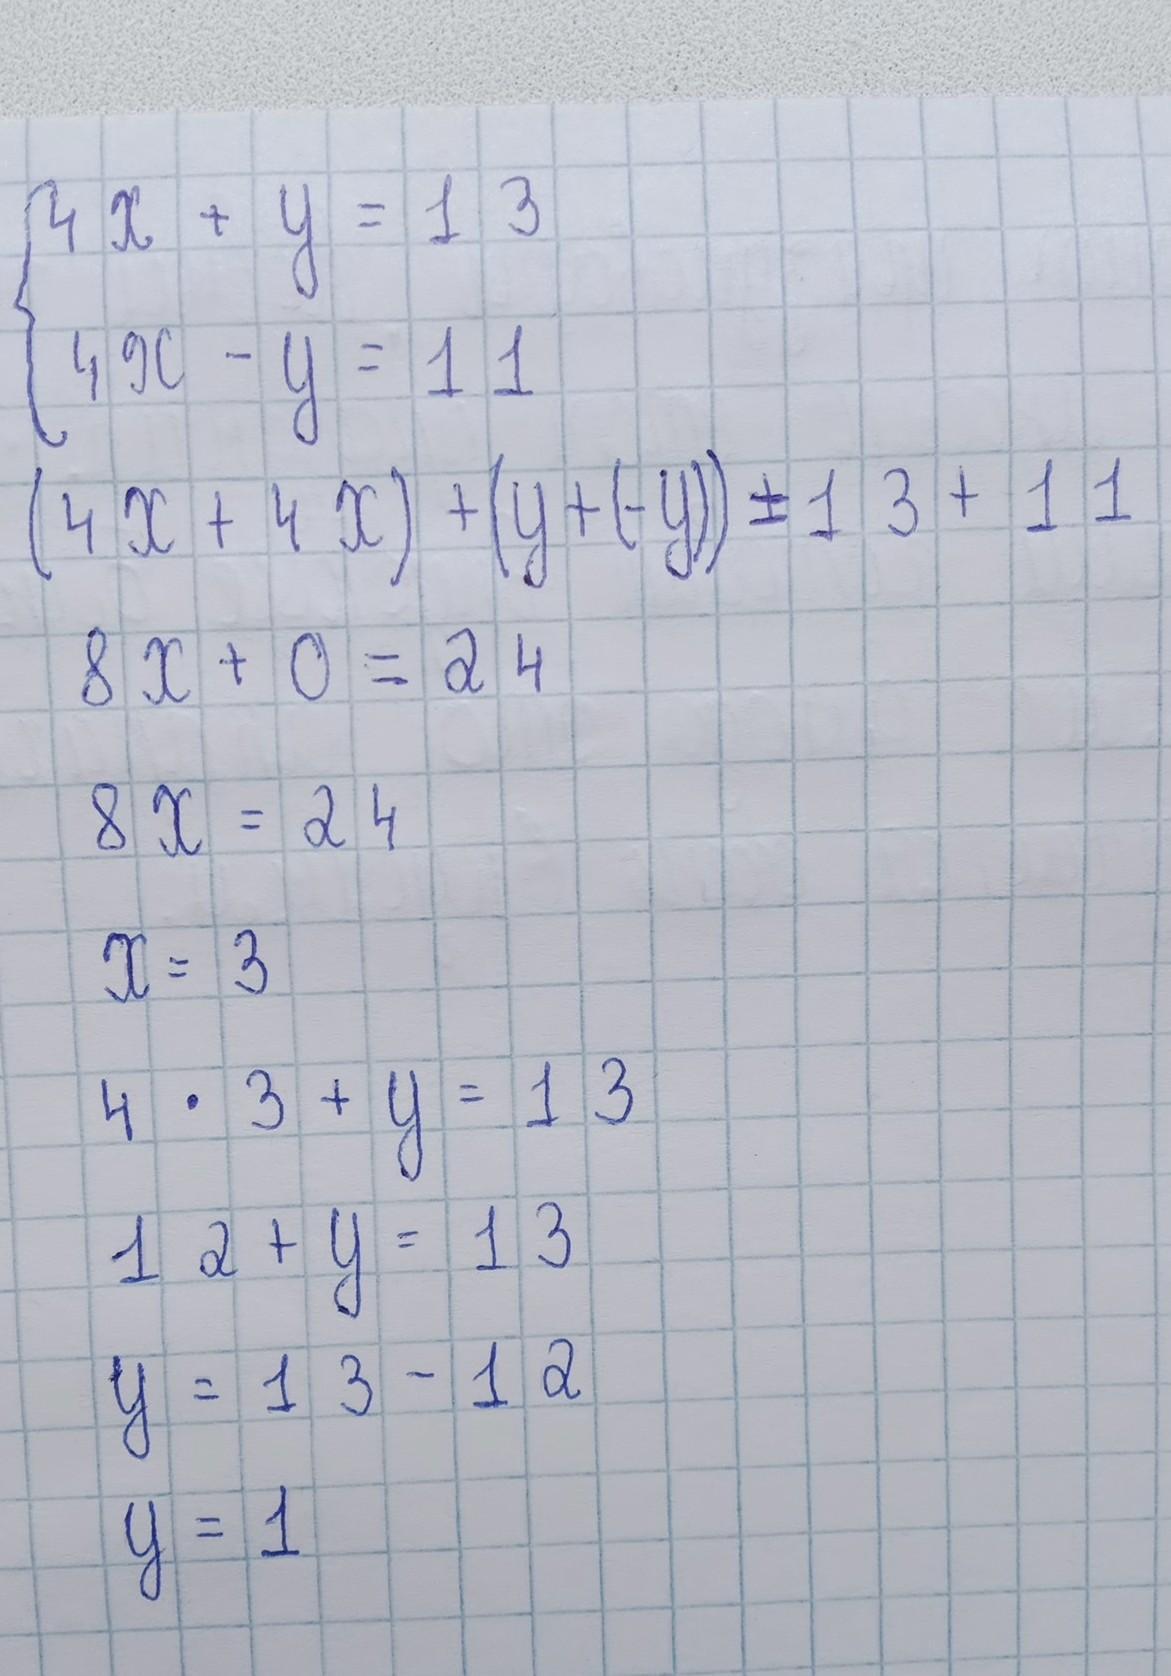 4x + y = 13
4x - y = 11
(4x + 4x) + (y + (-y)) = 13 + 11
8x + 0 = 24
8x = 24
x = 3
4 · 3 + y = 13
12 + y = 13
y = 13 - 12
y = 1